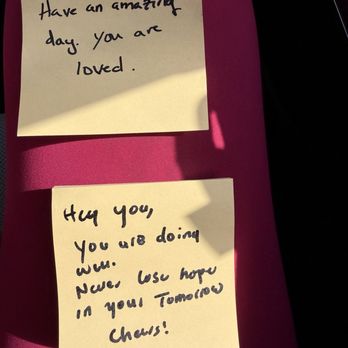 Have an amazing
day. you are
loved.
Hey you,
You are doing
well.
Never lose hope
in your Tomorrow
Cheers!